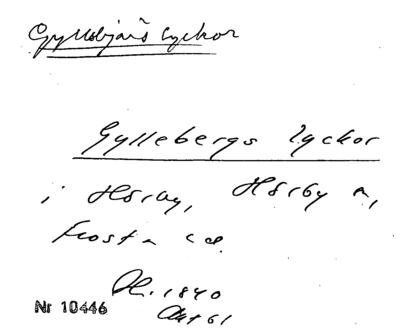 Gyllebjärs lyckor
Gyllebergs lyckor
i Hörby, Hörby s,
Frosta
H. 1840
Akt 61
Nr 10446